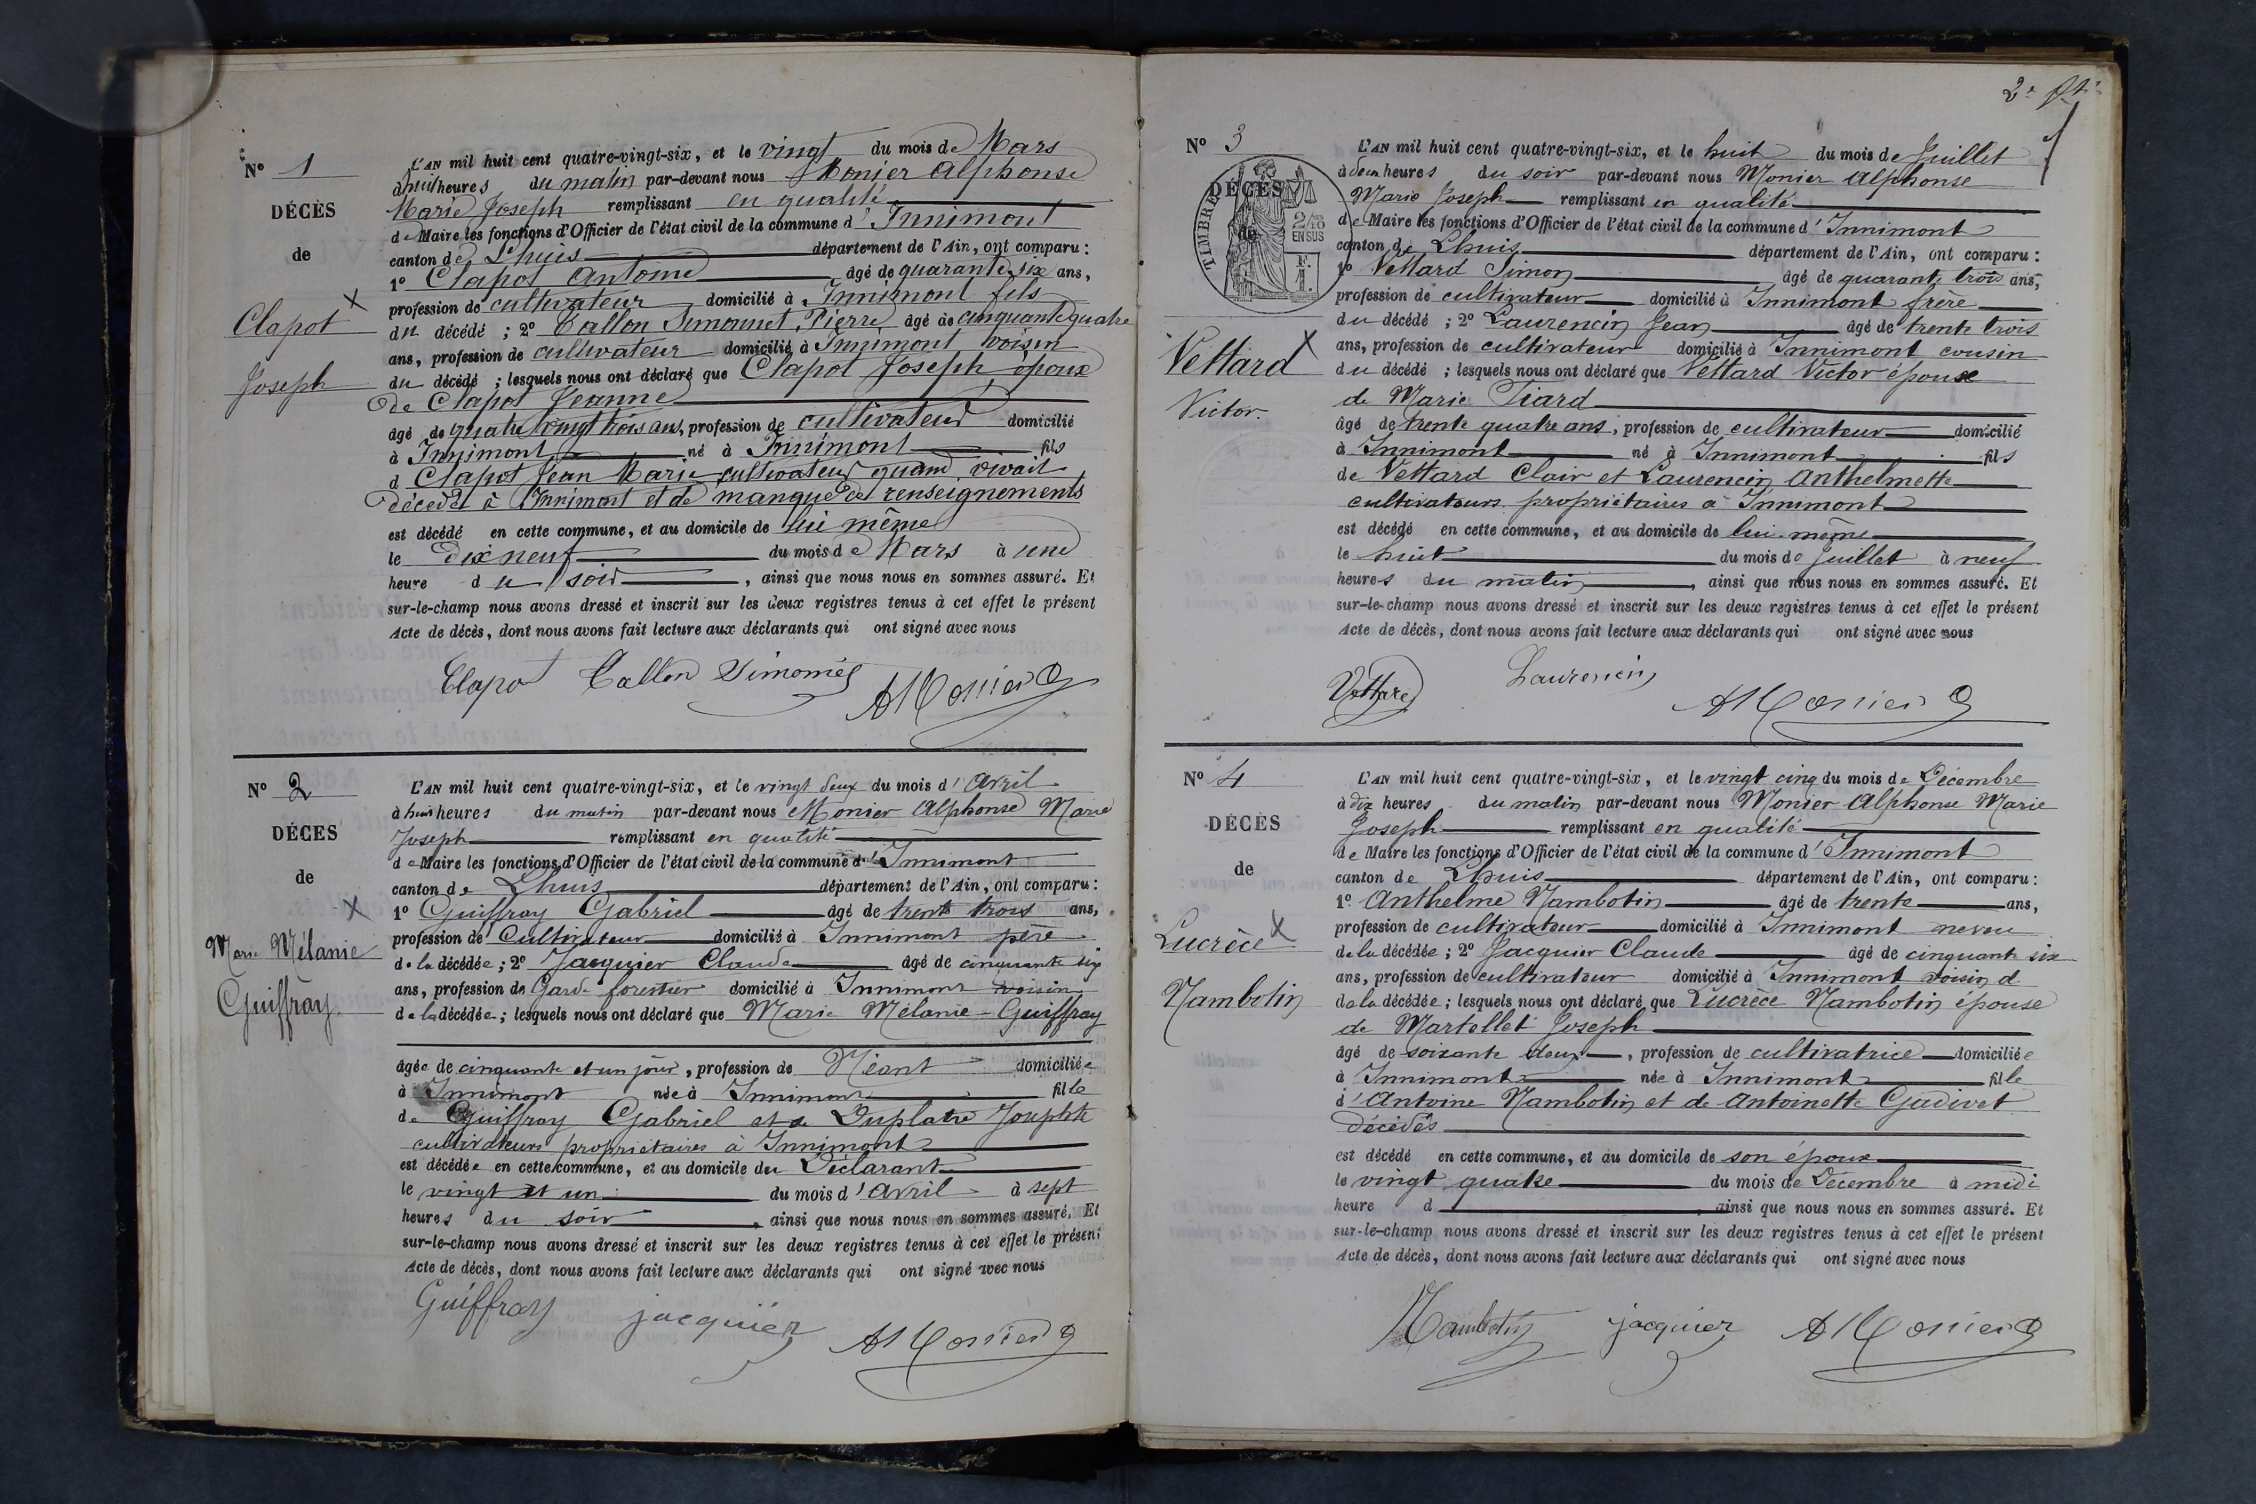 N° 1
DÉCÈS
de
Clapot
Joseph
L'AN mil huit cent quatre-vingt-six, et le vingt du mois de Mars
à huit heures du matin par-devant nous Monier Alphonse
Marie Joseph remplissant en qualité
de Maire les fonctions d'Officier de l'état civil de la commune d'Innimont
canton de Lhuis département de l'Ain, ont comparu :
1° Clapot Antoine âgé de quarante six ans,
profession de cultivateur domicilié à Innimont fils
du décédé ; 2° Callon Simonnet Pierre âgé de cinquante quatre
ans, profession de cultivateur domicilié à Innimont voisin
du décédé ; lesquels nous ont déclaré que Clapot Joseph, époux
de Clapot Jeanne
âgé de quatre vingt trois ans, profession de cultivateur domicilié
à Innimont né à Innimont fils
d Clapot Jean Marie cultivateur quand vivait
décédé à Innimont et de manque de renseignements
est décédé en cette commune, et au domicile de lui même
le dix neuf du mois de Mars à une
heure du soir, ainsi que nous nous en sommes assuré. Et
sur-le-champ nous avons dressé et inscrit sur les deux registres tenus à cet effet le présent
Acte de décès, dont nous avons fait lecture aux déclarants qui ont signé avec nous
Clapot Callon Simonnet AMonier
N° 2
DÉCES
de
Marie Mélanie
Guiffray
L'AN mil huit cent quatre-vingt-six, et le vingt deux du mois d'Avril
à huit heures du matin par-devant nous Monier Alphonse Marie
Joseph remplissant en qualité
de Maire les fonctions d'Officier de l'état civil de la commune d'Innimont
canton de Lhuis département de l'Ain, ont comparu :
1° Guiffray Gabriel âgé de trente trois ans,
profession de Cultivateur domicilié à Innimont père
de la décédée ; 2° Jacquier Claude âgé de cinquante six
ans, profession de Garde forestier domicilié à Innimont voisin
de la décédée ; lesquels nous ont déclaré que Marie Mélanie Guiffray
âgée de cinquante et un jour, profession de Néant domiciliée
à Innimont née à Innimont fille
de Guiffray Gabriel et de Duplatre Josephte
cultivateurs propriétaires à Innimont
est décédée en cette commune, et au domicile du Déclarant
le vingt et un du mois d'Avril à sept
heures du soir, ainsi que nous nous en sommes assuré. Et
sur-le-champ nous avons dressé et inscrit sur les deux registres tenus à cet effet le présent
Acte de décès, dont nous avons fait lecture aux déclarants qui ont signé avec nous
Guiffray jacquier AMonier
N° 3
DÉCÈS
de
TIMBRE
2/10
EN SUS
F.
1.
Vettard
Victor.
L'AN mil huit cent quatre-vingt-six, et le huit du mois de Juillet
à deux heures du soir par-devant nous Monier Alphonse
Marie Joseph remplissant en qualité
de Maire les fonctions d'Officier de l'état civil de la commune d'Innimont
canton de Lhuis département de l'Ain, ont comparu :
1° Vettard Simon âgé de quarante trois ans,
profession de cultivateur domicilié à Innimont frère
du décédé ; 2° Laurencin Jean âgé de trente trois
ans, profession de cultivateur domicilié à Innimont cousin
du décédé ; lesquels nous ont déclaré que Vettard Victor épouse
de Marie Tiard
âgé de trente quatre ans, profession de cultivateur domicilié
à Innimont né à Innimont fils
de Vettard Clair et Laurencin Anthelmette
cultivateurs propriétaires à Innimont
est décédé en cette commune, et au domicile de lui-même
le huit du mois de Juillet à neuf
heures du matin, ainsi que nous nous en sommes assuré. Et
sur-le-champ nous avons dressé et inscrit sur les deux registres tenus à cet effet le présent
Acte de décès, dont nous avons fait lecture aux déclarants qui ont signé avec nous
Vettard Laurencin AMonier
N° 4
DÉCÈS
de
Lucrèce
Nambotin
L'AN mil huit cent quatre-vingt-six, et le vingt cinq du mois de Décembre
à dix heures du matin par-devant nous Monier Alphonse Marie
Joseph remplissant en qualité
de Maire les fonctions d'Officier de l'état civil de la commune d'Innimont
canton de Lhuis département de l'Ain, ont comparu :
1° Anthelme Nambotin âgé de trente ans,
profession de cultivateur domicilié à Innimont neveu
de la décédée ; 2° Jacquier Claude âgé de cinquante six
ans, profession de cultivateur domicilié à Innimont voisin d
de la décédée ; lesquels nous ont déclaré que Lucrèce Nambotin épouse
de Martellet Joseph
âgé de soixante deux, profession de cultivatrice domiciliée
à Innimont née à Innimont fille
d'Antoine Nambotin et de Antoinette Gudivet
décédés
est décédé en cette commune, et au domicile de son époux
le vingt quatre du mois de Décembre à midi
heure d, ainsi que nous nous en sommes assuré. Et
sur-le-champ nous avons dressé et inscrit sur les deux registres tenus à cet effet le présent
Acte de décès, dont nous avons fait lecture aux déclarants qui ont signé avec nous
Nambotin jacquier AMonier